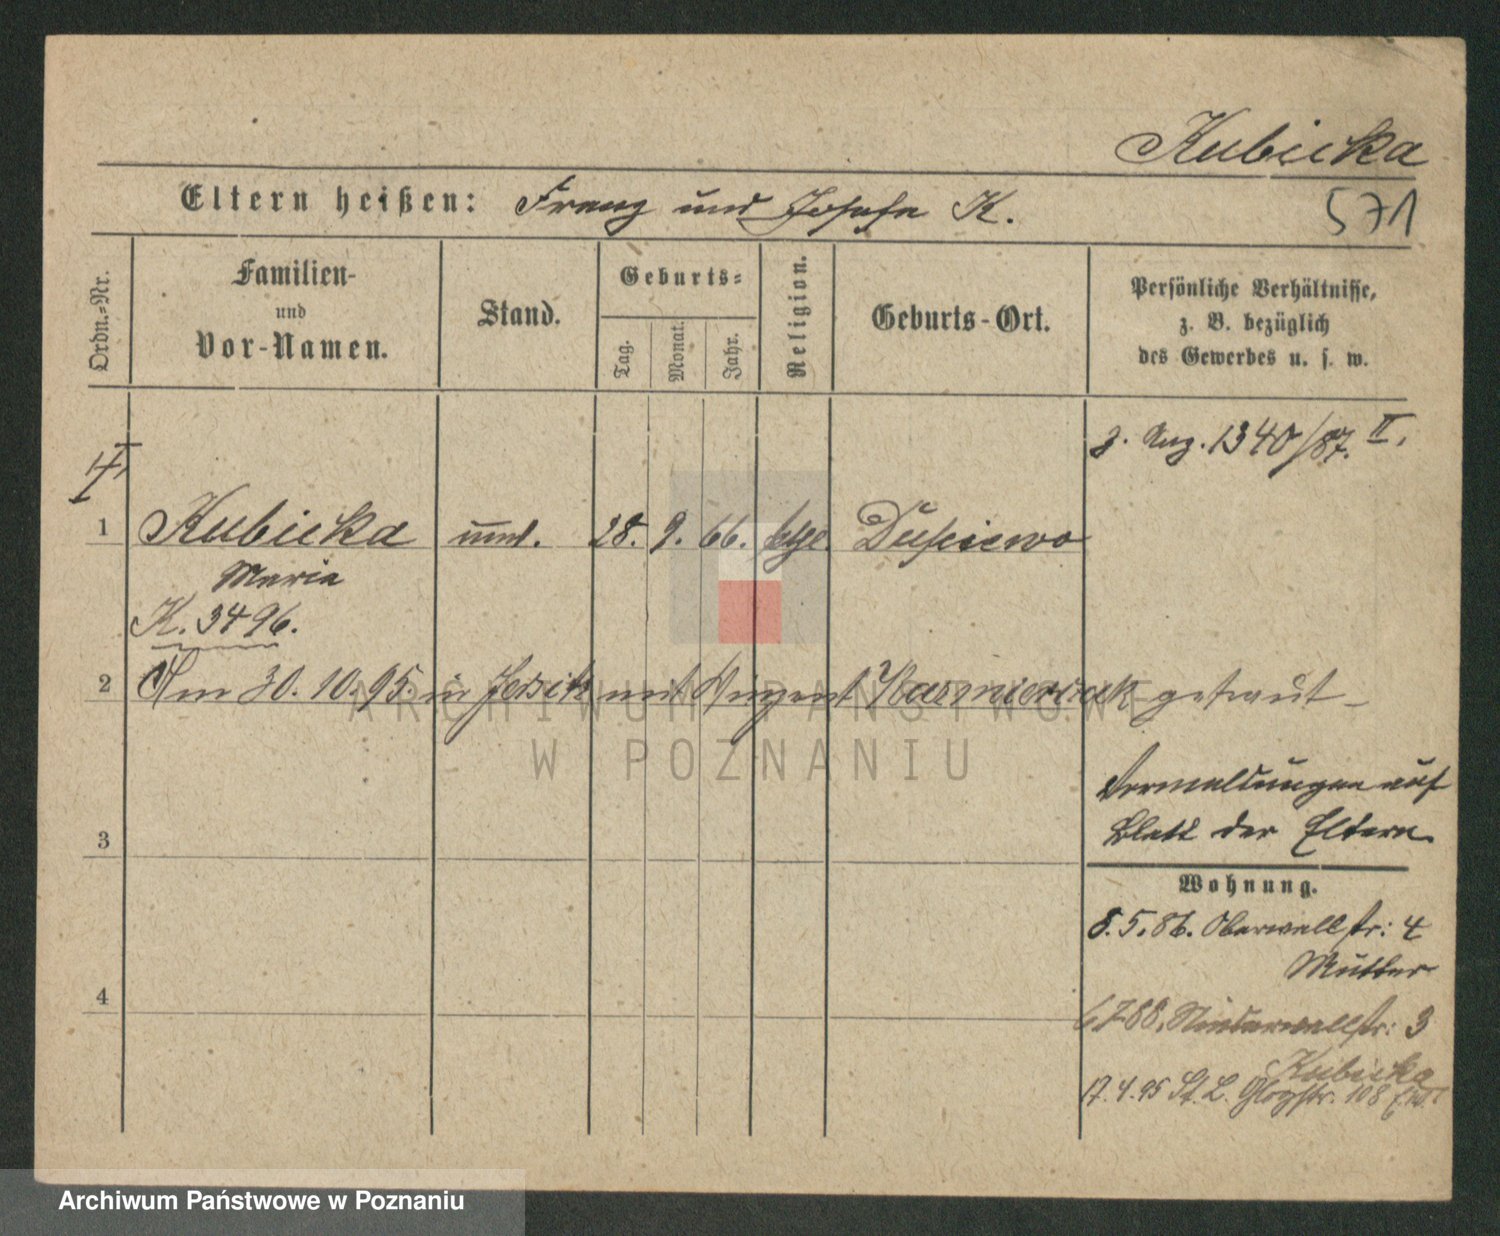 Kubicka
Eltern heißen: Franz und Josefa K.
571
Ordn.-Nr.
Familien-
und
Vor-Namen.
Stand.
Geburts-
Tag.
Monat.
Jahr.
Religion.
Geburts-Ort.
Persönliche Verhältnisse,
z. B. bezüglich
des Gewerbes u. s. w.
z. Aug. 1340/87. II.
1 Kubicka unv. 28. 9. 66. kath. Dusiewo
Maria
K. 3496.
2 Am 30.10.95. in Jersitz mit Vinzent Kazmierczak getraut
3
Vermeldungen auf
Blatt der Eltern
Wohnung.
8.5.86. Oberwallstr: 4
Mutter
4
6 7 88. Niederwallstr: 3
Kubicka
17.4.95 St. L. Glogstr. 108
ARCHIWUM PAŃSTWOWE
W POZNANIU
Archiwum Państwowe w Poznaniu